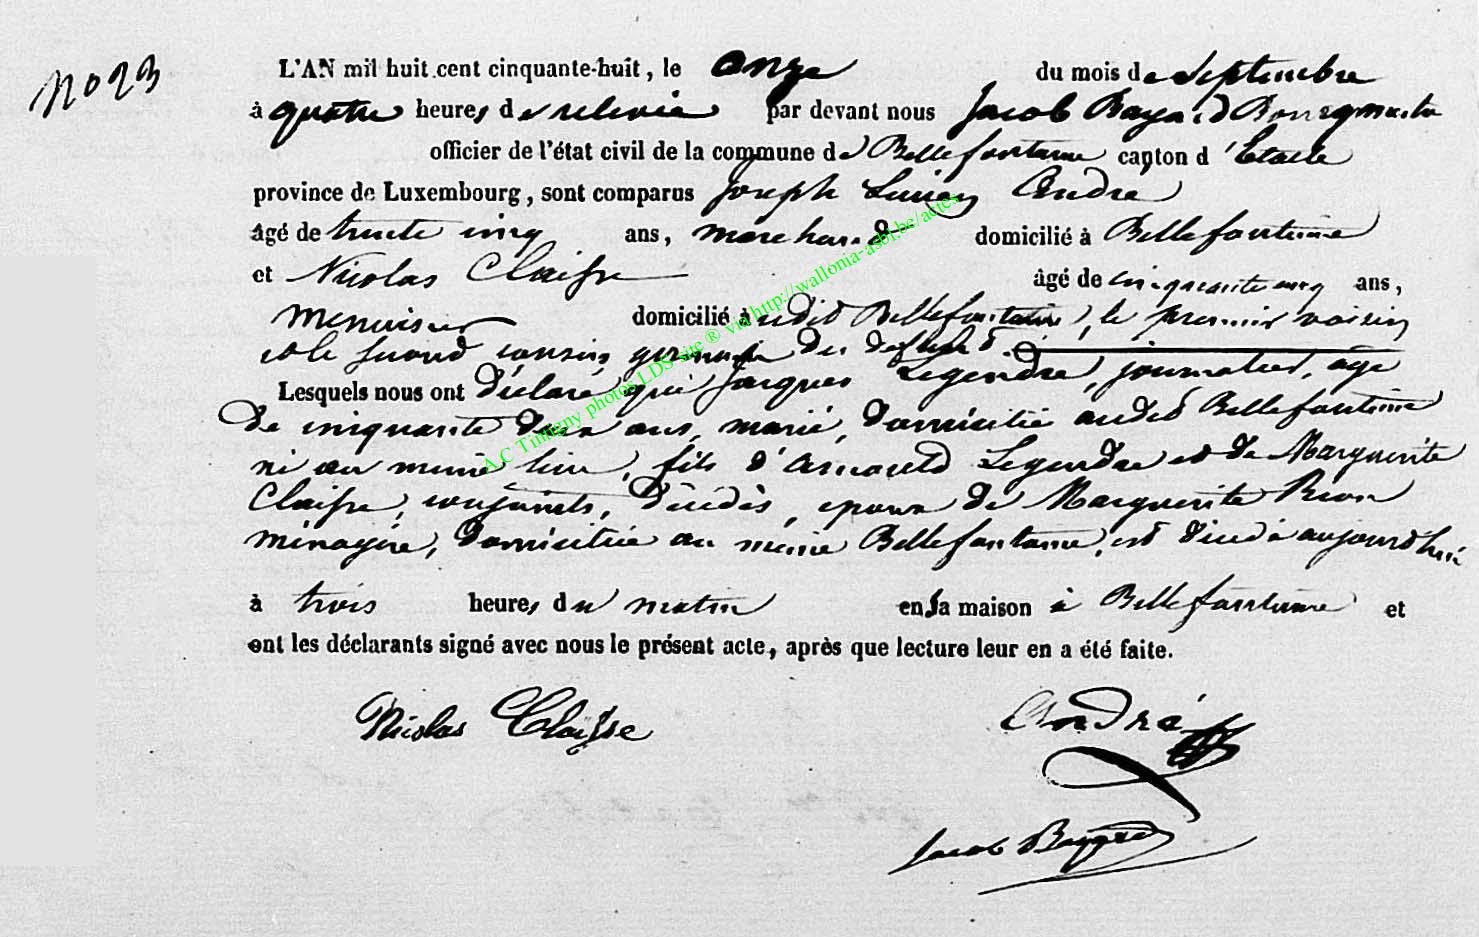 No 23
L'AN mil huit cent cinquante-huit, le onze du mois de Septembre
à quatre heures de relevée par devant nous Jacob Bayard Bourgmestre
officier de l'état civil de la commune de Bellefontaine canton d'Etalle
province de Luxembourg, sont comparus Joseph Lucien André
âgé de trente cinq ans, marchand domicilié à Bellefontaine
et Nicolas Claisse âgé de cinquante cinq ans,
menuisier domicilié audit Bellefontaine, le premier voisin
et le second cousin germain du défunt.
Lesquels nous ont déclaré que Jacques Legendre, journalier, âgé
de cinquante deux ans, marié, domicilié audit Bellefontaine
né au même lieu, fils d'Arnould Legendre et de Marguerite
Claisse, conjoints, décédés, epoux de Marguerite
ménagère, domiciliée au même Bellefontaine, est décédé aujourd'hui
à trois heures du matin en sa maison à Bellefontaine et
ont les déclarants signé avec nous le présent acte, après que lecture leur en a été faite.
Nicolas Claisse André
Jacob Bayard
A.C Tintigny photos LDS site ® via http://wallonia-asbl.be/actes